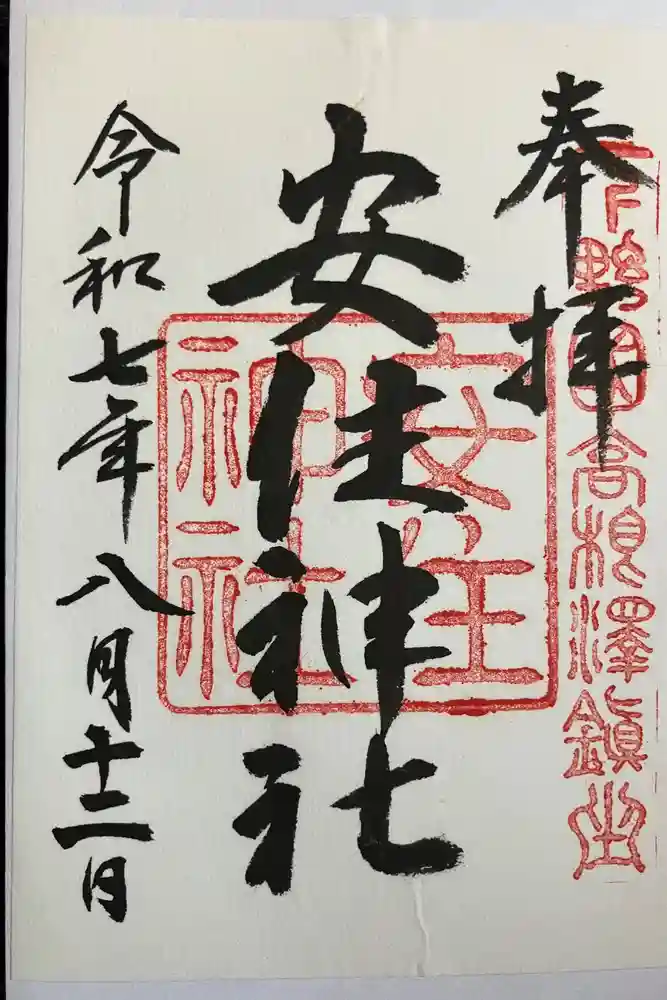 奉拝
下野国高根澤鎮座
安住神社
安住
神社
令和七年八月十二日